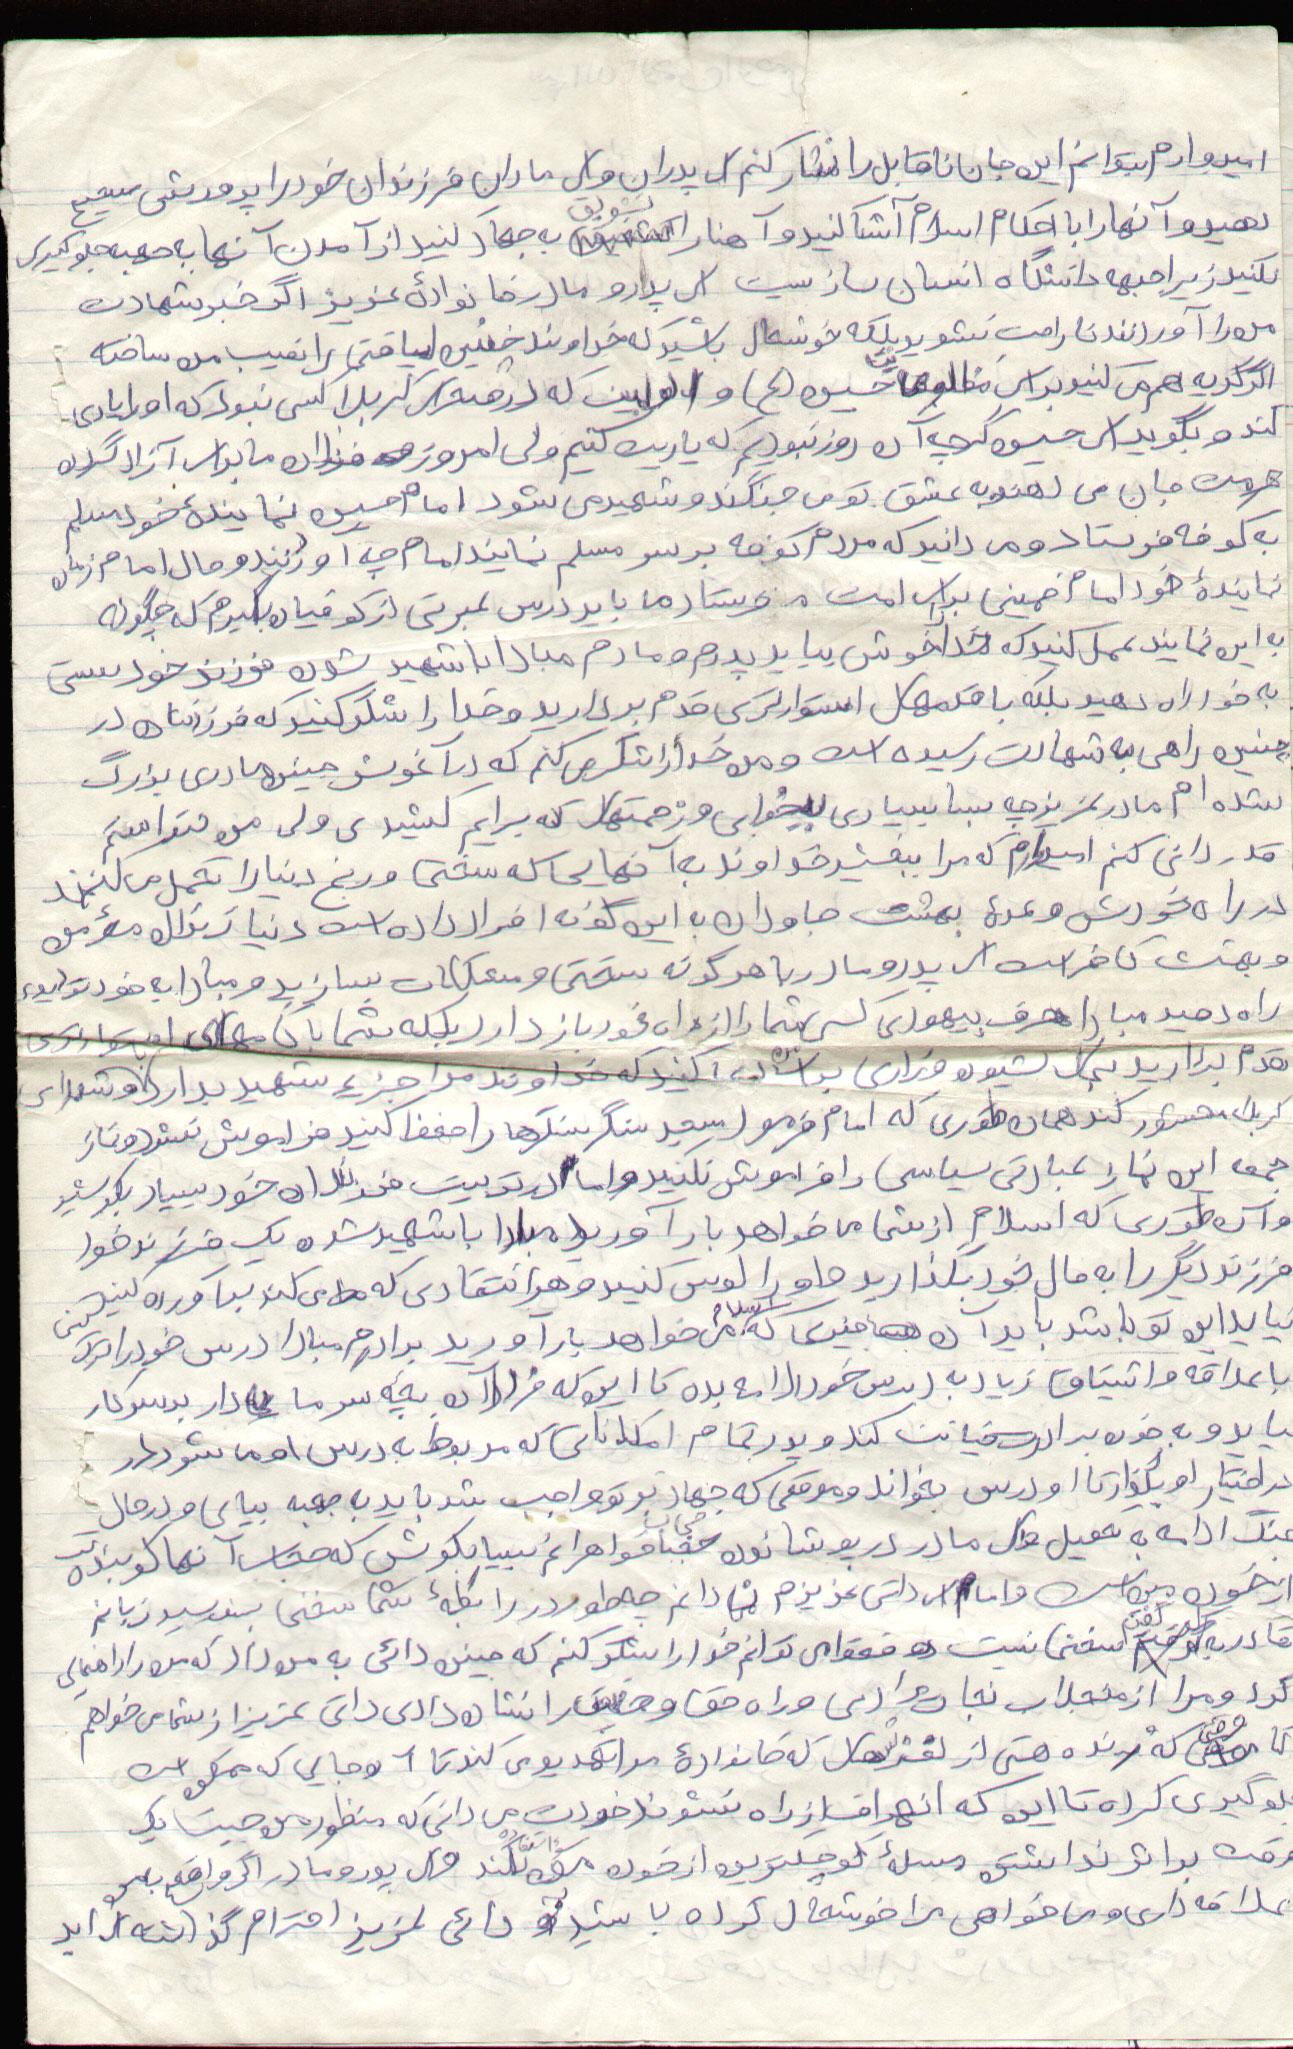 امیدوارم بتوانم این جان ناقابل را نثار کنم ای پدران و ای مادران فرزندان خود را پرورشی صحیح
دهید و آنها را با احکام اسلام آشنا کنید و آنها را تشویق به جهاد کنید از آمدن آنها به جبهه جلوگیری
نکنید زیرا جبهه دانشگاه انسان سازیست ای پدر و مادر خانوادهٔ عزیز اگر خبر شهادت
من را آوردند ناراحت نشوید بلکه خوشحال باشید که خداوند چنین لیاقتی را نصیب من ساخته
اگر گریه هم می کنید برای مظلومیت حسین (ع) و که در صحرای کربلا کسی نبود که او را یاری
کند و بگوید ای حسین گرچه آن روز نبودیم که یاریت کنیم ولی امروز فرزندان ما برای آزاد کردن
حرمت جان می دهند به عشق تو می جنگند و شهید می شود امام حسین نمایندهٔ خود مسلم
به کوفه فرستاد و می دانید که مردم کوفه بر سر مسلم نمایند امام چه آوردند و حال امام زمان
نمایندهٔ خود امام خمینی برای امت فرستاد ما باید درس عبرتی از کوفیان بگیرم که چگونه
به این نمایند عمل کنید که خدا را خوش بیاید پدرم و مادرم مبادا با شهید شدن فرزند خود سستی
به خود راه دهید بلکه با قدمهای استوارتری قدم بردارید و خدا را شکر کنید که فرزندتان در
چنین راهی به شهادت رسیده است و من خدا را شکر می کنم که در آغوش چنین مادری بزرگ
شده ام مادر عزیز چه بسیاری بیخوابی و زحمتهای که برایم کشیدی ولی من نتوانستم
قدر دانی کنم امیدوارم که مرا ببخشید خداوند به آنهایی که سختی و رنج دنیا را تحمل می کنند
در راه خودش وعدهٔ بهشت جاودان به این گونه افراد داده است دنیا زندان مؤمن
و بهشت کافر است ای پدر و مادر با هر گونه سختی و مشکلات بسازید و مبادا به خود تردید
راه دهید مبادا حرف بیهودی کسی شما را از راه خود باز دارد بلکه شما با گامهای استوارتری
قدم بردارید بجای شیون و زاری برای بنده دعا کنید که خداوند مرا جزیء شهید بدارد و با شهدای
کربلا محشور کند همان طوری که امام فرمود مسجد سنگر سنگرها را حفظ کنید فراموش نشود و نماز
جمعه این نماز عبادتی سیاسی را فراموش نکنید و اما در تربیت فرزندان خود بسیار بکوشید
و آن طوری که اسلام از شما می خواهد بار آورید مبادا با شهید شدن یک فرزند خود
فرزند دیگر را به حال خود بگذارید و او را لوس کنید و هر انتقادی که می کند برآورده کنید
نباید این گونه باشد باید آن چنان که اسلام می خواهد بار آورید برادرم مبادا درس خود را ترک کنی
با علاقه و اشتیاق زیاد به درس خود ادامه بده تا این که فردا آن بچه سرمایه دار بر سر کار
بیاید و به خون برادرت خیانت کند و پدر تمام امکاناتی که مربوط به درس او می شود در
در اختیار او بگذار تا او درس بخواند و موقعی که جهاد بر تو واجب شد باید به جبهه بیایی و در حال
جنگ ادامه به تحصیل و ای مادر در پوشاندن حجاب خواهرانم بسیار بکوش که حجاب آنها کوبنده تر
از خون من است و اما ای دائی عزیزم نمی دانم چه طور در رابطهٔ شما سخنی بنویسم زبانم
قادر به گفتن سخنی نیست فقط می توانم خدا را شکر کنم که چنین دائی به من داد که من را راهنمایی
کرد و مرا از منجلاب نجات دادی و راه حق و حقیقت را نشان دادی دائی عزیز از شما می خواهم
تا موقعی که زنده هستی از لغزشهای که خانوادهٔ مرا تهدید می کند تا آن جایی که ممکن است
جلوگیری کرده تا این که انحراف از راه نشوند خودت می دانی که منظور من چیست یک
وقت براثر نداشتن مسلهٔ کوچکترین از خون من استفاده نکنند و ای پدر و مادر اگر واقعا به من
علاقه داری و می خواهی مرا خوشحال کرده باشید به دائی عزیز احترام گذاشته اید